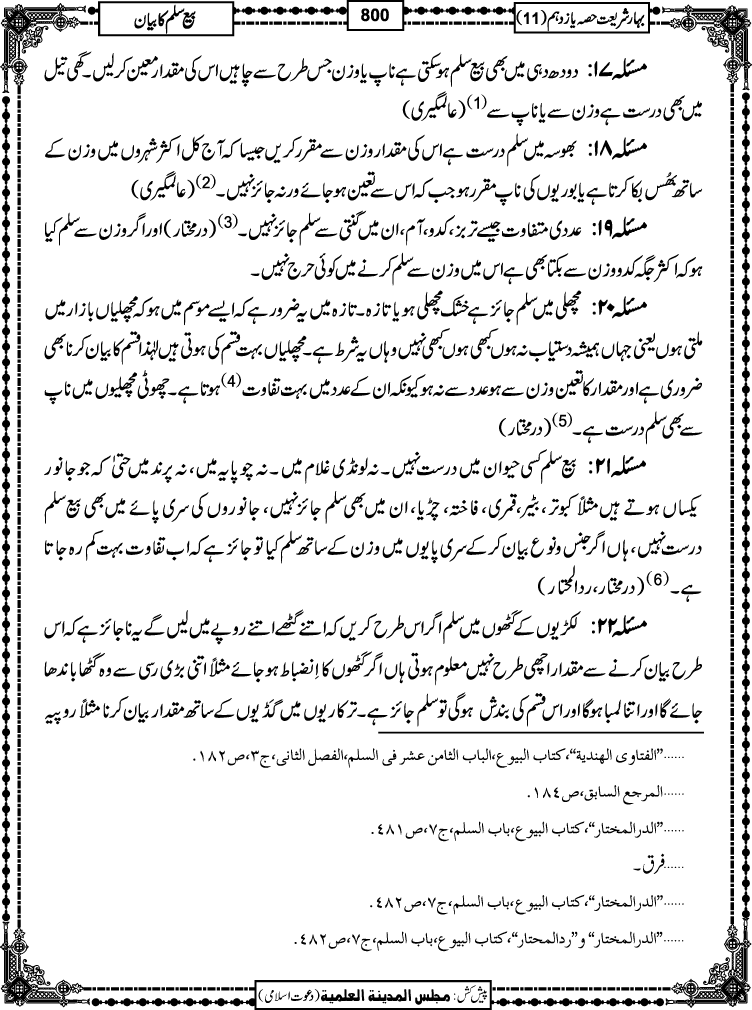 بہارشریعت حصہ یازدہم (11)
800
بیع سلم کا بیان
مسئلہ ۱۷: دودھ دہی میں بھی بیع سلم ہوسکتی ہے ناپ یا وزن جس طرح سے چاہیں اس کی مقدار معین کرلیں۔ گھی تیل
میں بھی درست ہے وزن سے یا ناپ سے (1) (عالمگیری)
مسئلہ ۱۸: بھوسہ میں سلم درست ہے اس کی مقدار وزن سے مقرر کریں جیسا کہ آج کل اکثر شہروں میں وزن کے
ساتھ بھُس بکا کرتا ہے یا بوریوں کی ناپ مقرر ہو جب کہ اس سے تعین ہوجائے ورنہ جائز نہیں۔ (2) (عالمگیری)
مسئلہ ۱۹: عددی متفاوت جیسے تربز، کدو، آم، ان میں گنتی سے سلم جائز نہیں۔ (3) (درمختار) اور اگر وزن سے سلم کیا
ہو کہ اکثر جگہ کدو وزن سے بکتا بھی ہے اس میں وزن سے سلم کرنے میں کوئی حرج نہیں۔
مسئلہ ۲۰: مچھلی میں سلم جائز ہے خشک مچھلی ہو یا تازہ۔ تازہ میں یہ ضرور ہے کہ ایسے موسم میں ہو کہ مچھلیاں بازار میں
ملتی ہوں یعنی جہاں ہمیشہ دستیاب نہ ہوں کبھی ہوں کبھی نہیں وہاں یہ شرط ہے۔ مچھلیاں بہت قسم کی ہوتی ہیں لہٰذا قسم کا بیان کرنا بھی
ضروری ہے اور مقدار کا تعین وزن سے ہو عدد سے نہ ہو کیونکہ ان کے عدد میں بہت تفاوت (4) ہوتا ہے۔ چھوٹی مچھلیوں میں ناپ
سے بھی سلم درست ہے۔ (5) (درمختار)
مسئلہ ۲۱: بیع سلم کسی حیوان میں درست نہیں۔ نہ لونڈی غلام میں۔ نہ چوپایہ میں، نہ پرند میں حتیٰ کہ جو جانور
یکساں ہوتے ہیں مثلاً کبوتر، بٹیر، قمری، فاختہ، چڑیا، ان میں بھی سلم جائز نہیں، جانوروں کی سری پائے میں بھی بیع سلم
درست نہیں، ہاں اگر جنس و نوع بیان کرکے سری پایوں میں وزن کے ساتھ سلم کیا تو جائز ہے کہ اب تفاوت بہت کم رہ جاتا
ہے۔ (6) (درمختار، ردالمحتار)
مسئلہ ۲۲: لکڑیوں کے گٹھوں میں سلم اگر اس طرح کریں کہ اتنے گٹھے اتنے روپے میں لیں گے یہ ناجائز ہے کہ اس
طرح بیان کرنے سے مقدار اچھی طرح نہیں معلوم ہوتی ہاں اگر گٹھوں کا اِنضباط ہوجائے مثلاً اتنی بڑی رسی سے وہ گٹھا باندھا
جائے گا اور اتنا لمبا ہوگا اور اس قسم کی بندش ہوگی تو سلم جائز ہے۔ ترکاریوں میں گڈیوں کے ساتھ مقدار بیان کرنا مثلاً روپیہ
......”الفتاوی الھندیة“،کتاب البیوع،الباب الثامن عشر فی السلم،الفصل الثانی،ج۳،ص۱۸۲.
......المرجع السابق،ص۱۸۴.
......”الدرالمختار“،کتاب البیوع،باب السلم،ج۷،ص۴۸۱.
......فرق۔
......”الدرالمختار“،کتاب البیوع،باب السلم،ج۷،ص۴۸۲.
......”الدرالمختار“ و”ردالمحتار“،کتاب البیوع،باب السلم،ج۷،ص۴۸۲.
پیش کش: مجلس المدینة العلمیة (دعوت اسلامی)